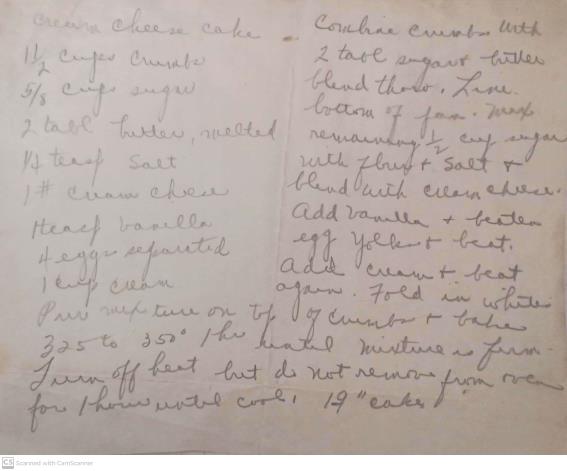 cream cheese cake
1 1/2 cups crumbs
5/8 cup sugar
2 tabl butter, melted
1/4 teasp salt
1 # cream cheese
1 teasp vanilla
4 eggs separated
1 cup cream
Combine crumbs with
2 tabl sugar & butter
blend thoro. Line
bottom of pan. Mix
remaining 1/2 cup sugar
with flour & salt &
blend with cream cheese.
Add vanilla & beaten
egg yolks & beat.
Add cream & beat
again. Fold in whites
Pour mixture on top of crumbs & bake
325 to 350° 1 hr until mixture is firm.
Turn off heat but do not remove from oven
for 1 hour until cool. 1 9" cake
CS Scanned with CamScanner